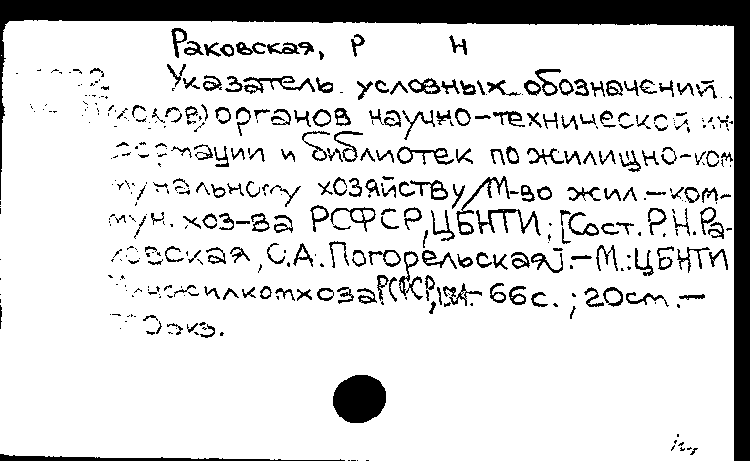 Раковская, Р Н
Указатель условных обозначений
(кодов) органов научно-технической ин-
формации и библиотек по жилищно-ком
мунальному хозяйству/М-во жил.-ком-
мун. хоз-ва РСФСР, ЦБНТИ; [Сост. Р.Н. Ра-
ковская, С.А. Погорельская]. - М.: ЦБНТИ
Минжилкомхоза РСФСР, 1984.- 66с. ; 20см. -
экз.